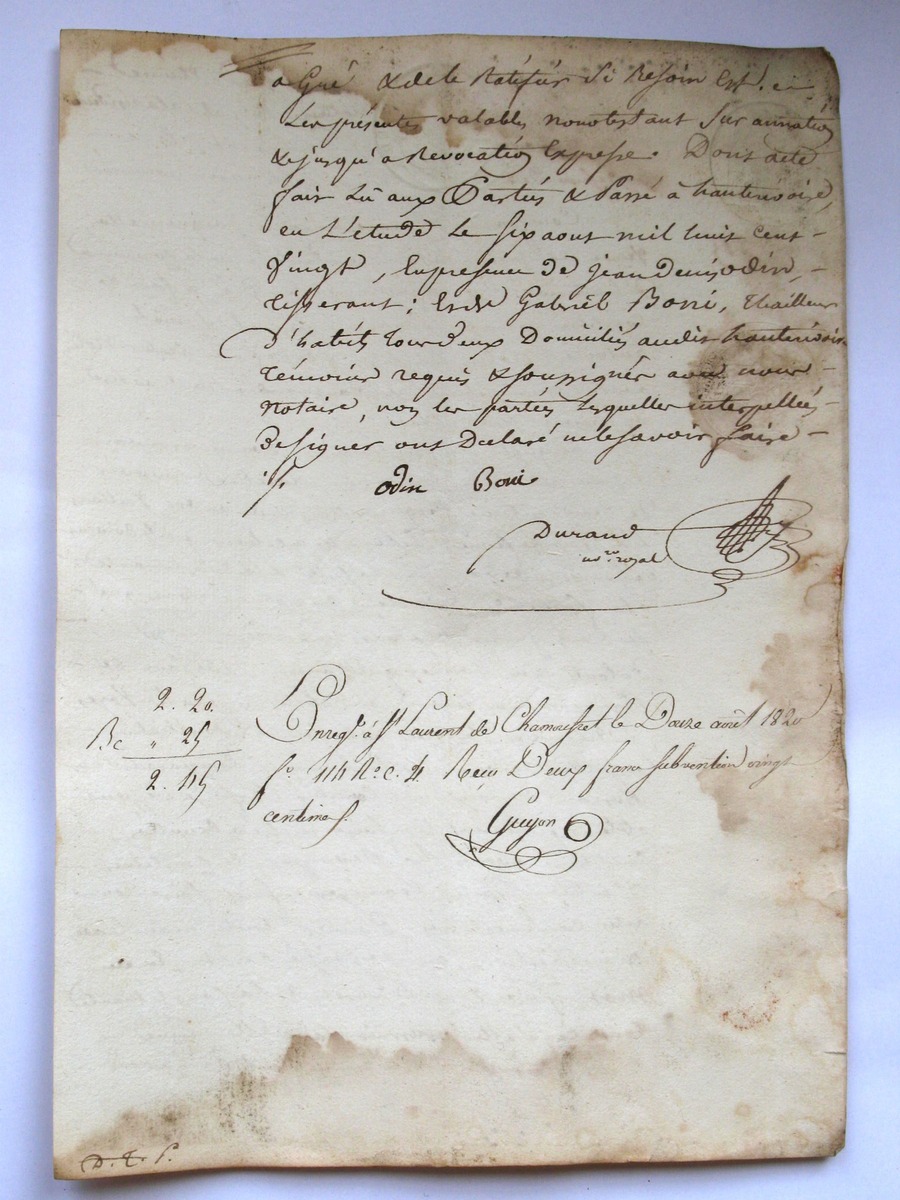 a Gré & de le Ratifier Si Besoin Est.
Les présentes valables nonobstant Surannation
& jusqu'a Revocation Expresse. Dont acte
fait Lû aux Parties & Passé à hauterivoire,
en L'étude Le Six aout mil huit cent -
Vingt, En presence De jean denis odin, -
tisserant; Et de Gabriël Boni, thailleur
D'habits tous deux Domiciliés audit hauterivoire
témoins requis & soussignés avec nous -
Notaire, non les parties lesquelles interpellées -
De signer ont Déclaré ne le savoir faire -
odin Boni
Durand
nore. royal
2. 20.
Bc " 25
2. 45
Enregé. à St Laurent de Chamousset le Douze août 1820
fo. 114 Ro. c. 4. Reçu Deux francs subvention vingt
centimes.
Guyon
D. T. P.